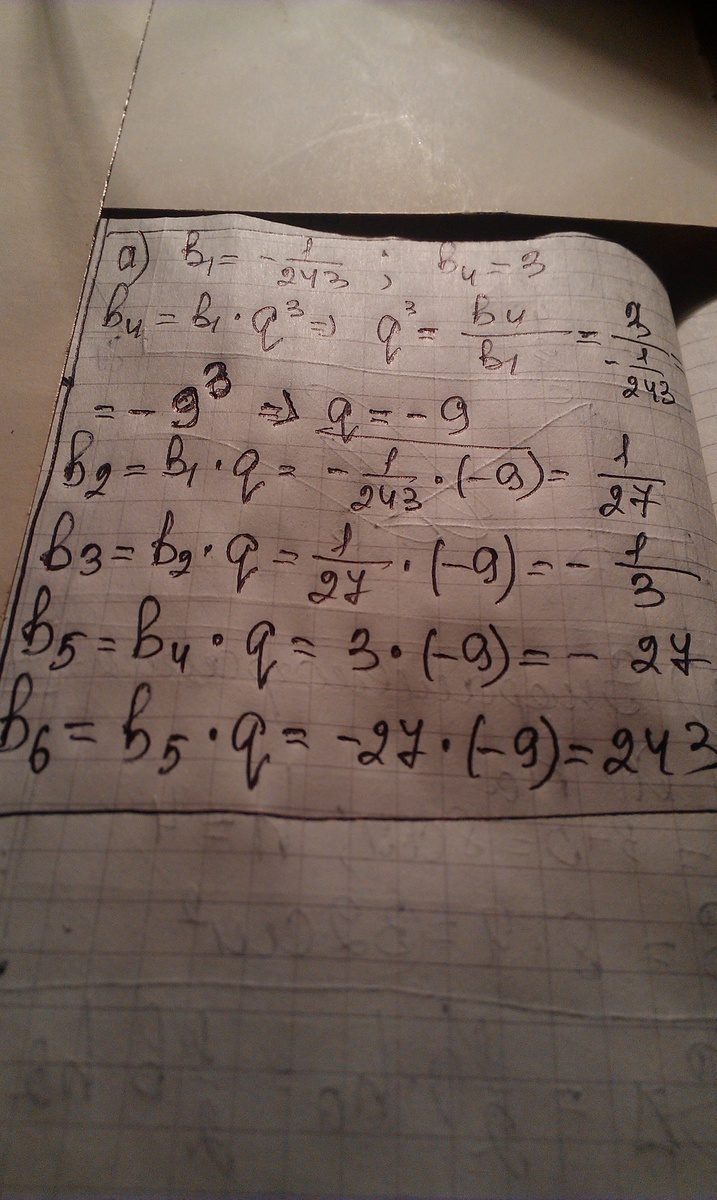 а) b₁ = -1/243 ; b₄ = 3
b₄ = b₁ · q³ => q³ = b₄/b₁ = 3/(-1/243) =
= -9³ => q = -9
b₂ = b₁ · q = -1/243 · (-9) = 1/27
b₃ = b₂ · q = 1/27 · (-9) = -1/3
b₅ = b₄ · q = 3 · (-9) = -27
b₆ = b₅ · q = -27 · (-9) = 243